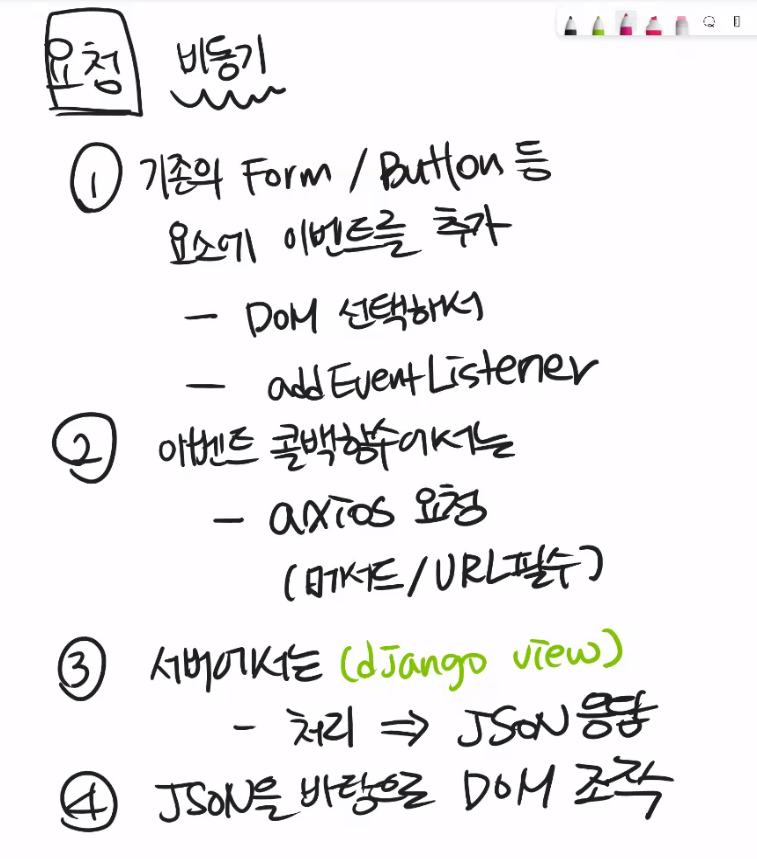 요청 비동기
① 기존의 Form / Button 등
요소에 이벤트를 추가
- DOM 선택해서
- addEventListener
② 이벤트 콜백함수에서는
- axios 요청
(메서드/URL필수)
③ 서버에서는 (django view)
- 처리 ⇒ JSON 응답
④ JSON을 바탕으로 DOM 조작